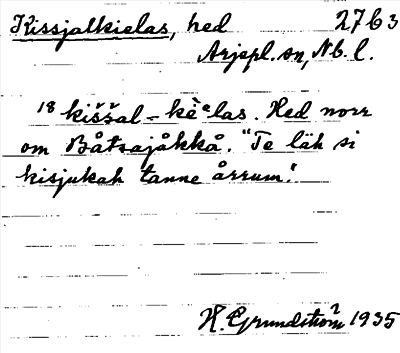 Kissjalkielas, hed 27 G3
Arjepl. sn, Nb. l.
18 kiššal-kèᵉlas. Hed norr
om Båtsajåkkå. "Te läh si
kisjukah tanne årrum."
H. Grundström 1935